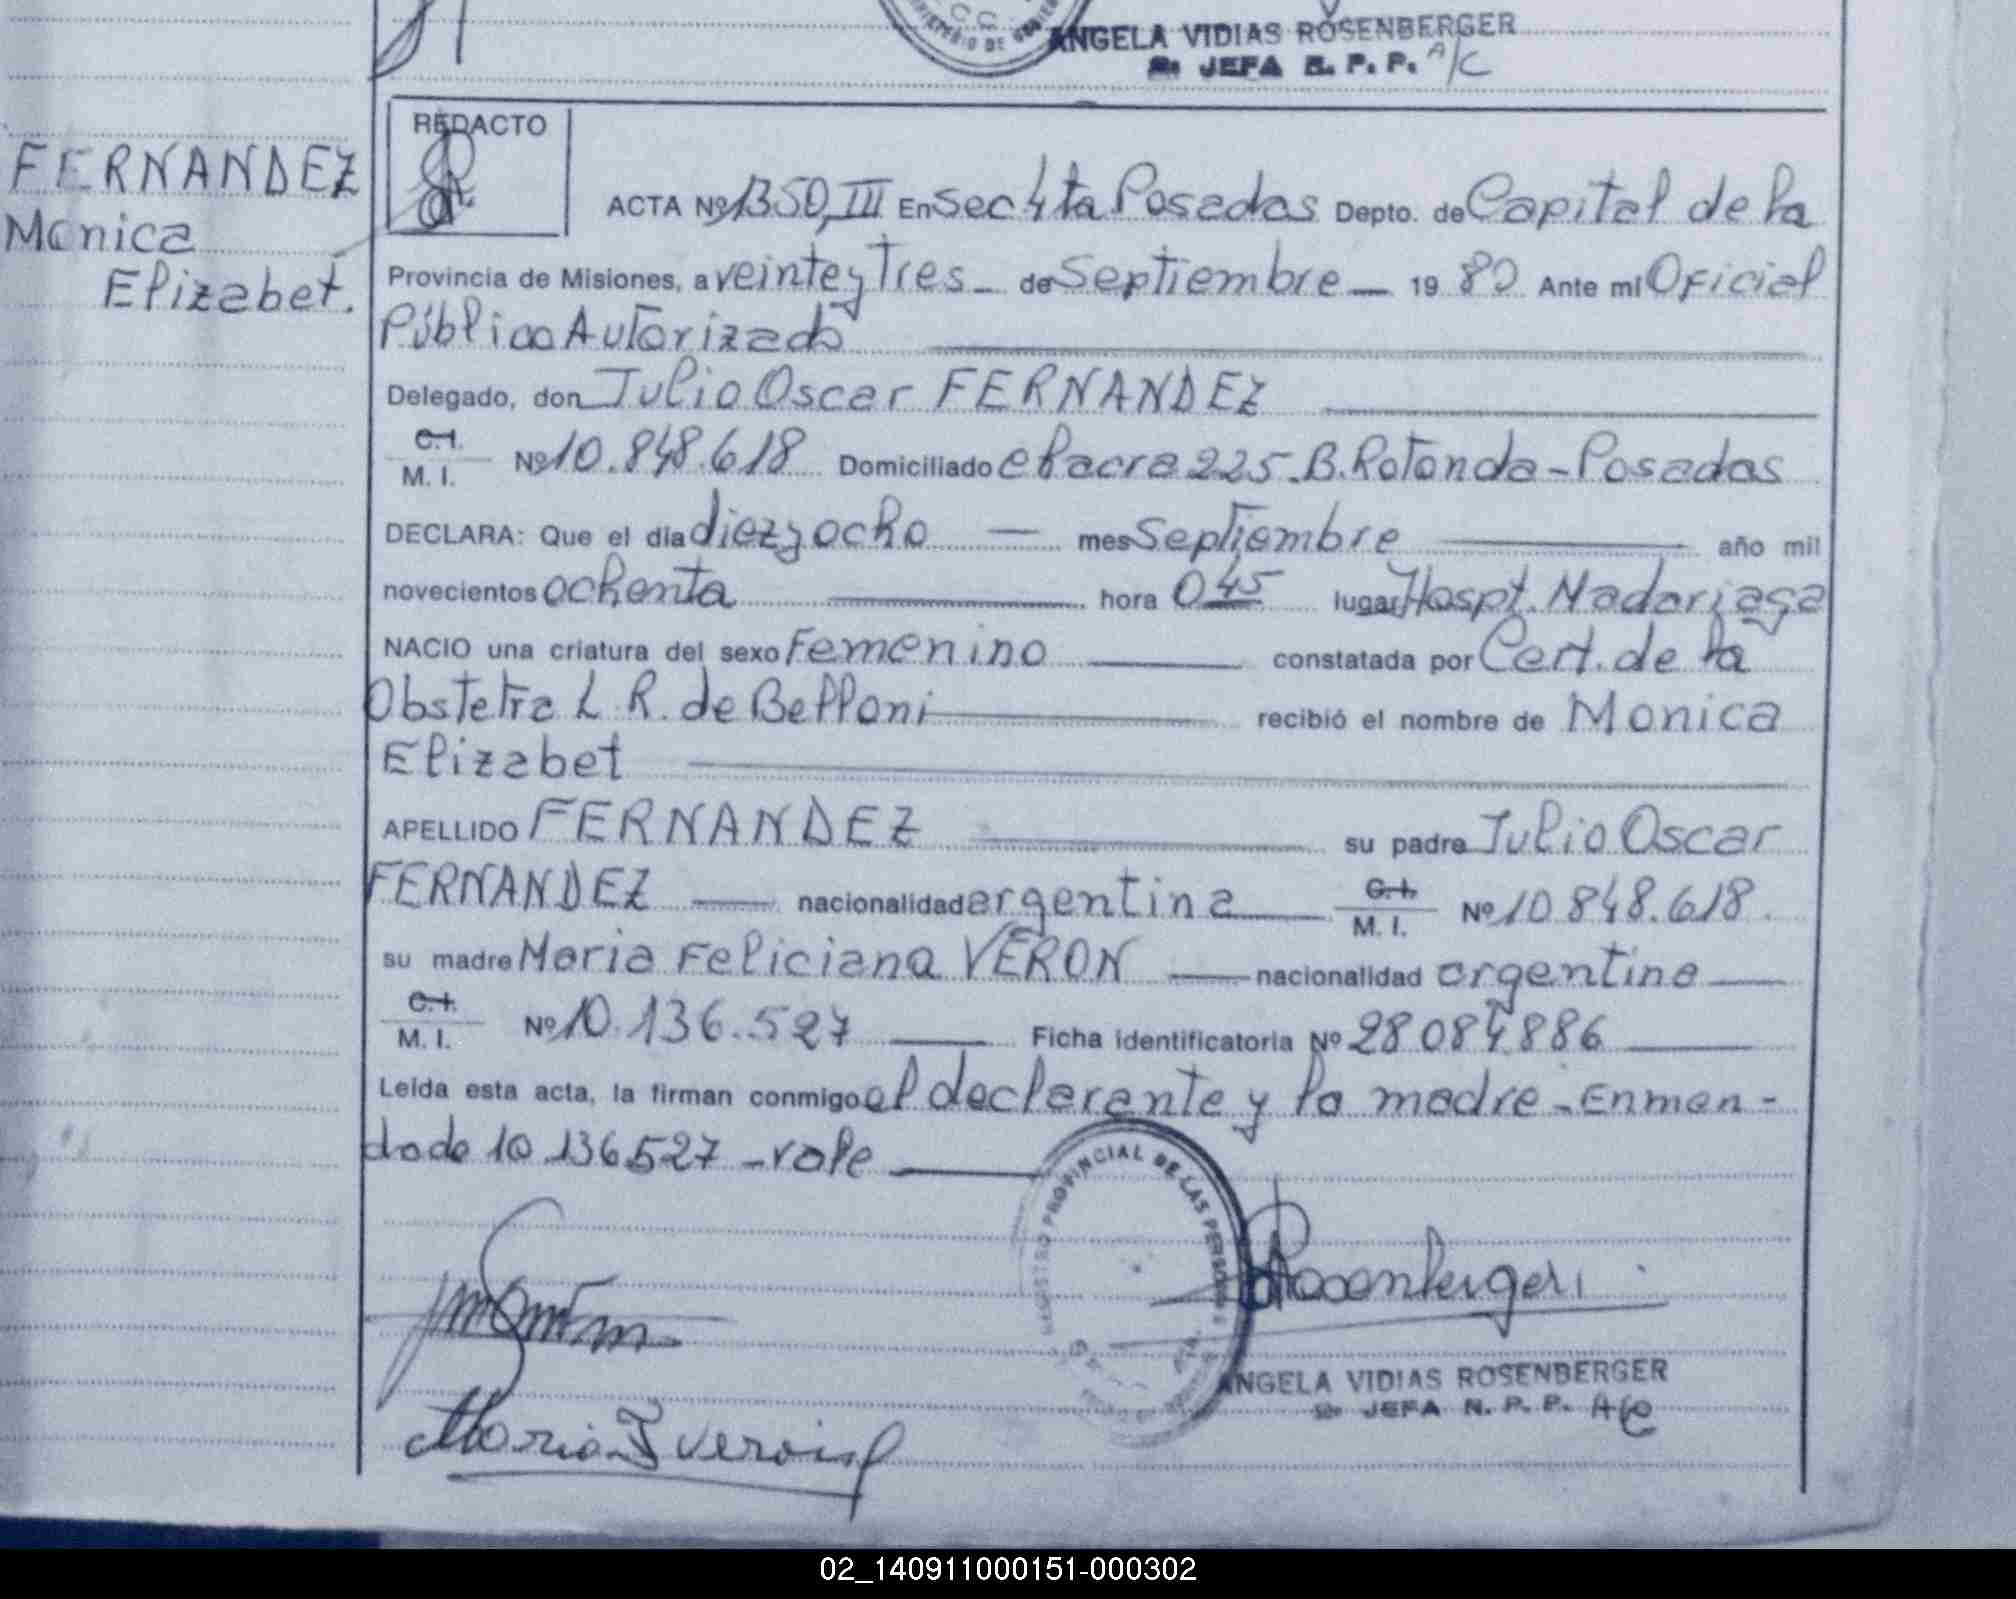 MINISTERIO DE GOBIERNO
ANGELA VIDIAS ROSENBERGER
JEFA R. P. P. A/C
REDACTO
FERNANDEZ
Monica
Elizabet.
ACTA Nº 1350, III En Sec 4ta Posadas Depto. de Capital de la
Provincia de Misiones, a veinte y Tres - de Septiembre - 19 80 Ante mi Oficial
Público Autorizado
Delegado, don Julio Oscar FERNANDEZ
C.I.
M. I. Nº 10.848.618 Domiciliado chacra 225. B. Rotonda - Posadas
DECLARA: Que el día diez y ocho — mes Septiembre año mil
novecientos ochenta hora 0 45 lugar Hospt. Madariaga
NACIO una criatura del sexo Femenino constatada por Cert. de la
Obstetra L. R. de Belloni recibió el nombre de Monica
Elizabet
APELLIDO FERNANDEZ su padre Julio Oscar
FERNANDEZ — nacionalidad argentina C.I. M. I. Nº 10.848.618.
su madre Maria Feliciana VERON — nacionalidad argentina
C.I.
M. I. Nº 10.136.527 Ficha identificatoria Nº 28084886
Leída esta acta, la firman conmigo el declarante y la madre - Enmen-
dado 10.136527 - vale
REGISTRO PROVINCIAL DE LAS PERSONAS
Rosenberger
ANGELA VIDIAS ROSENBERGER
JEFA R. P. P. A/C
Maria F Veron
02_140911000151-000302